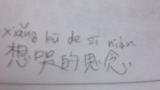 xiǎng kū de sī niàn
想哭的思念